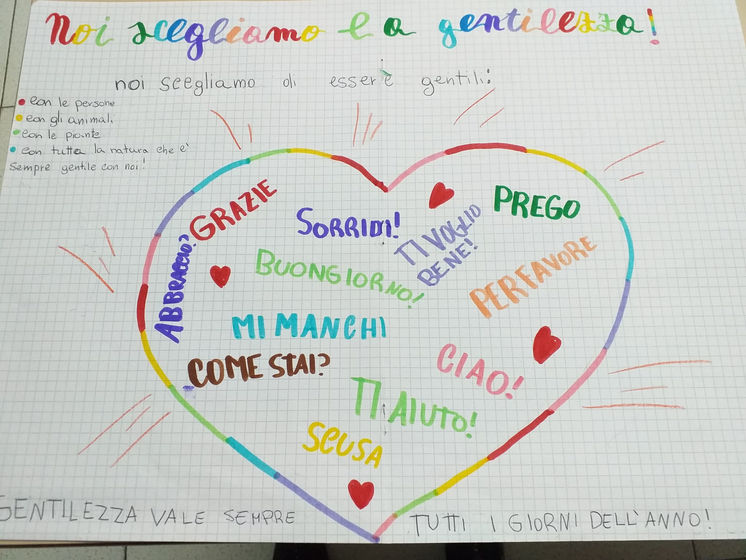 Noi scegliamo la gentilezza!
noi scegliamo di essere gentili:
con le persone
con gli animali
con le piante
con tutta la natura che è
sempre gentile con noi!
GRAZIE
SORRIDI!
TI VOGLIO
BENE!
PREGO
ABBRACCIO?
BUONGIORNO!
PER FAVORE
MI MANCHI
COME STAI?
CIAO!
TI AIUTO!
SCUSA
GENTILEZZA VALE SEMPRE
TUTTI I GIORNI DELL'ANNO!